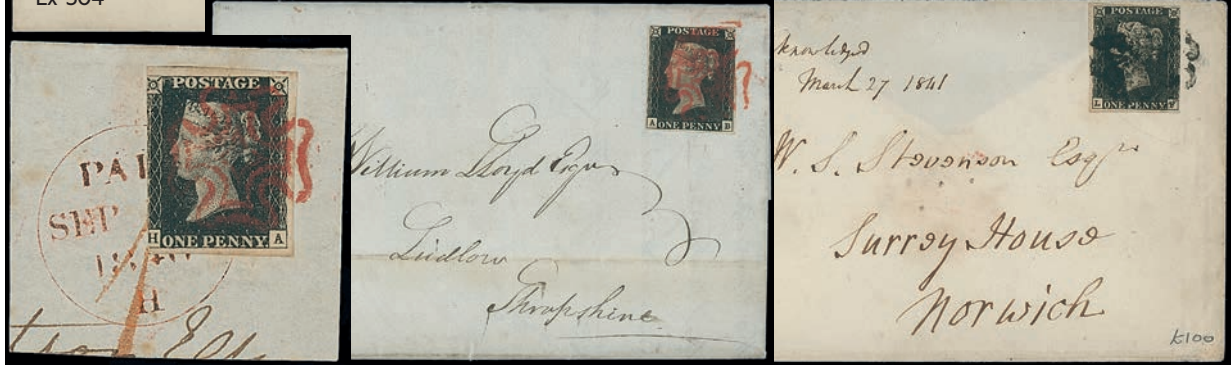 Ex 304
POSTAGE
H ONE PENNY A
PAI
SEP
H
POSTAGE
A ONE PENNY B
William Lloyd Esqre
Ludlow
Shropshire
POSTAGE
L ONE PENNY
March 27 1841
W. S. Stevenson Esqr
Surrey House
Norwich
£100